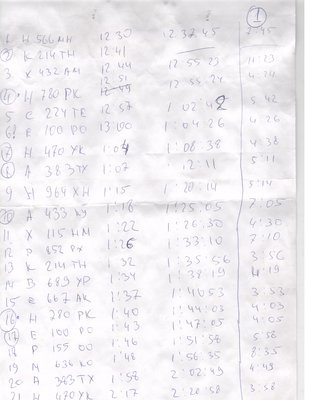 1
1 H 566 MH 12 30 12 37 45 2 45
2 K 214 TH 12 41
3 X 432 AM 12 44 12 55 23 11:23
4 H 780 PK 12 51 12 55 24 4:24
5 C 224 TE 12 57 1 02 42 5 42
6 E 100 PO 13:00 1:04 26 4 26
7 H 470 YK 1:04 1:08:38 4:38
8 A 383 TX 1:07 12:11 5:11
9 H 964 XH 1:15 1:20:14 5:14
10 A 433 1:18 1:25:05 7:05
11 X 115 HM 1:22 1:26:30 4:30
12 P 652 PX 1:26 1:33:10 7:10
13 K 214 TH 32 1:35:56 3:56
14 B 689 YP 1:34 1:38 19 4:19
15 C 667 AK 1:37 1:40 53 3:53
16 H 280 PK 1:40 1:44:03 4:03
17 E 100 PO 1:43 1:47:05 4:05
18 P 155 OO 1:46 1:51:58 5:58
19 M 636 KO 1:48 1:56:35 8:35
20 A 383 TX 1:58 2:02:49 4:49
21 H 470 YK 2:17 2:20:58 3:58